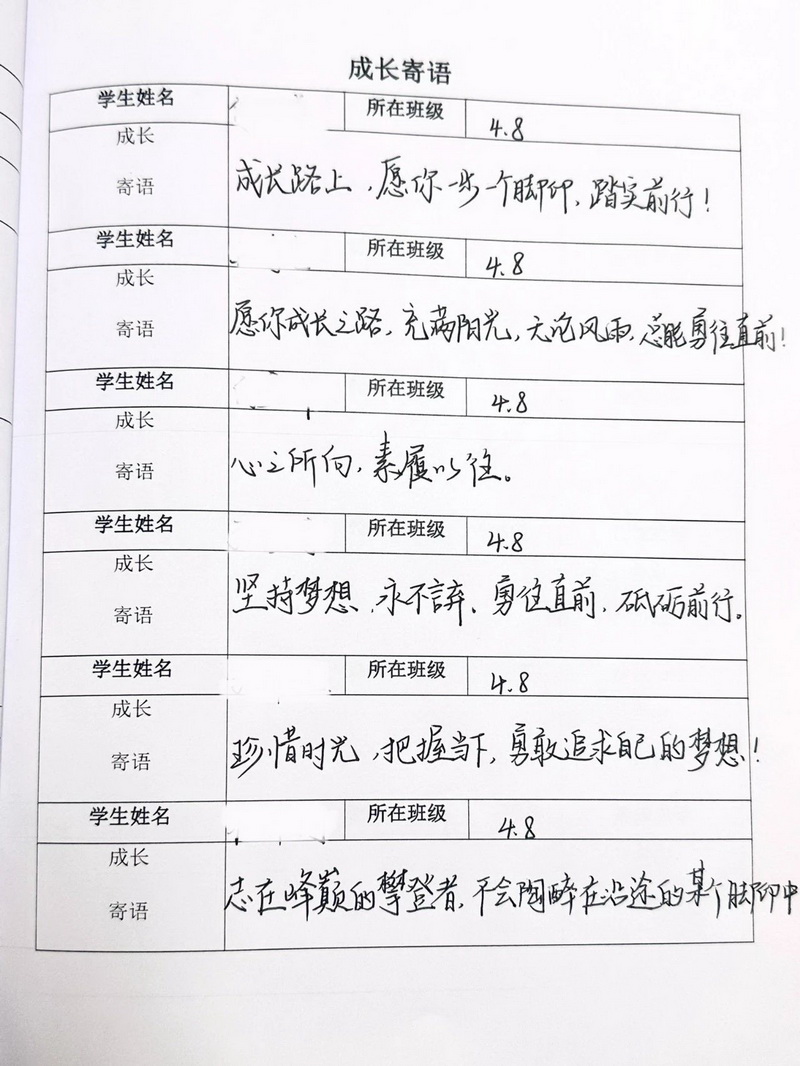 成长寄语
学生姓名 所在班级 4.8
成长
寄语 成长路上，愿你一步一个脚印，踏实前行！
学生姓名 所在班级 4.8
成长
寄语 愿你成长之路，充满阳光，无论风雨，总能勇往直前！
学生姓名 所在班级 4.8
成长
寄语 心之所向，素履以往。
学生姓名 所在班级 4.8
成长
寄语 坚持梦想，永不言弃，勇往直前，砥砺前行。
学生姓名 所在班级 4.8
成长
寄语 珍惜时光，把握当下，勇敢追求自己的梦想！
学生姓名 所在班级 4.8
成长
寄语 志在峰巅的攀登者，不会陶醉在沿途的某个脚印中